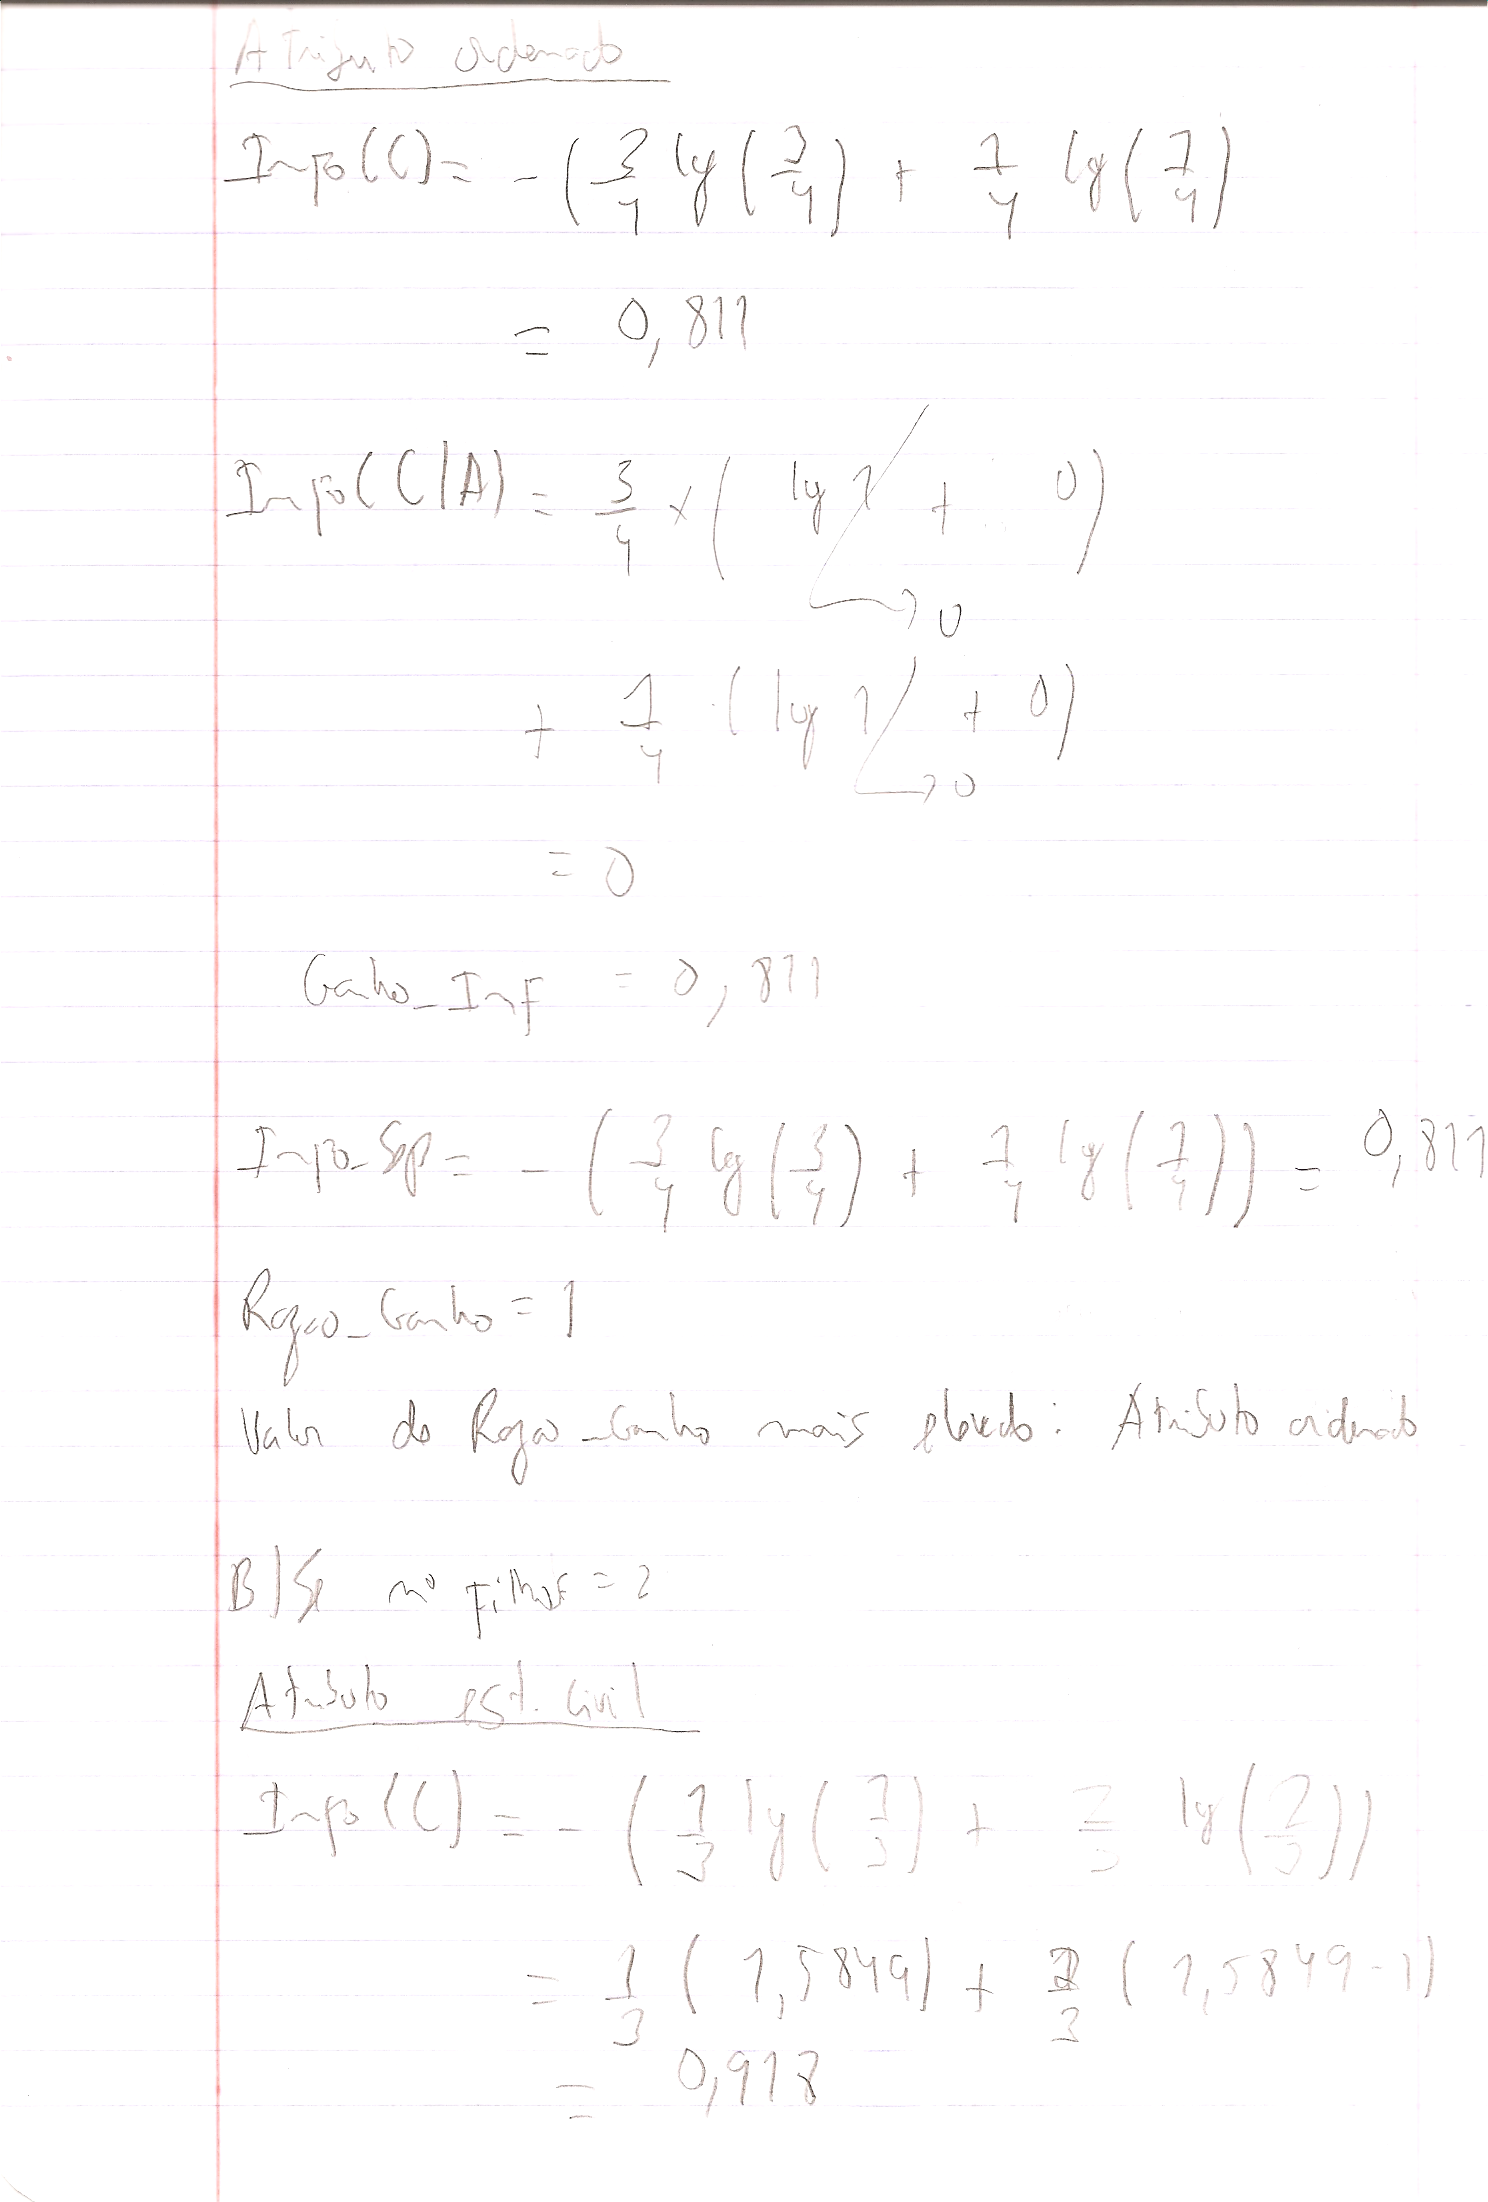 Atributo ordenado
Info(C) = - (3/4 lg (3/4) + 1/4 lg (1/4)
= 0,811
Info(C|A) = 3/4 × ( lg 1 + 0)
→ 0
+ 1/4 · ( lg 1 + 0)
→ 0
= 0
Ganho_Inf = 0,811
Info_Sep = - ( 3/4 lg (3/4) + 1/4 lg (1/4)) = 0,811
Razao_Ganho = 1
Valor de Razao_Ganho mais elevado: Atributo ordenado
B) Se nº Filhos = 2
Atributo est. Civil
Info(C) = - ( 1/3 lg (1/3) + 2/3 lg (2/3))
= 1/3 ( 1,5849) + 2/3 ( 1,5849-1)
= 0,918